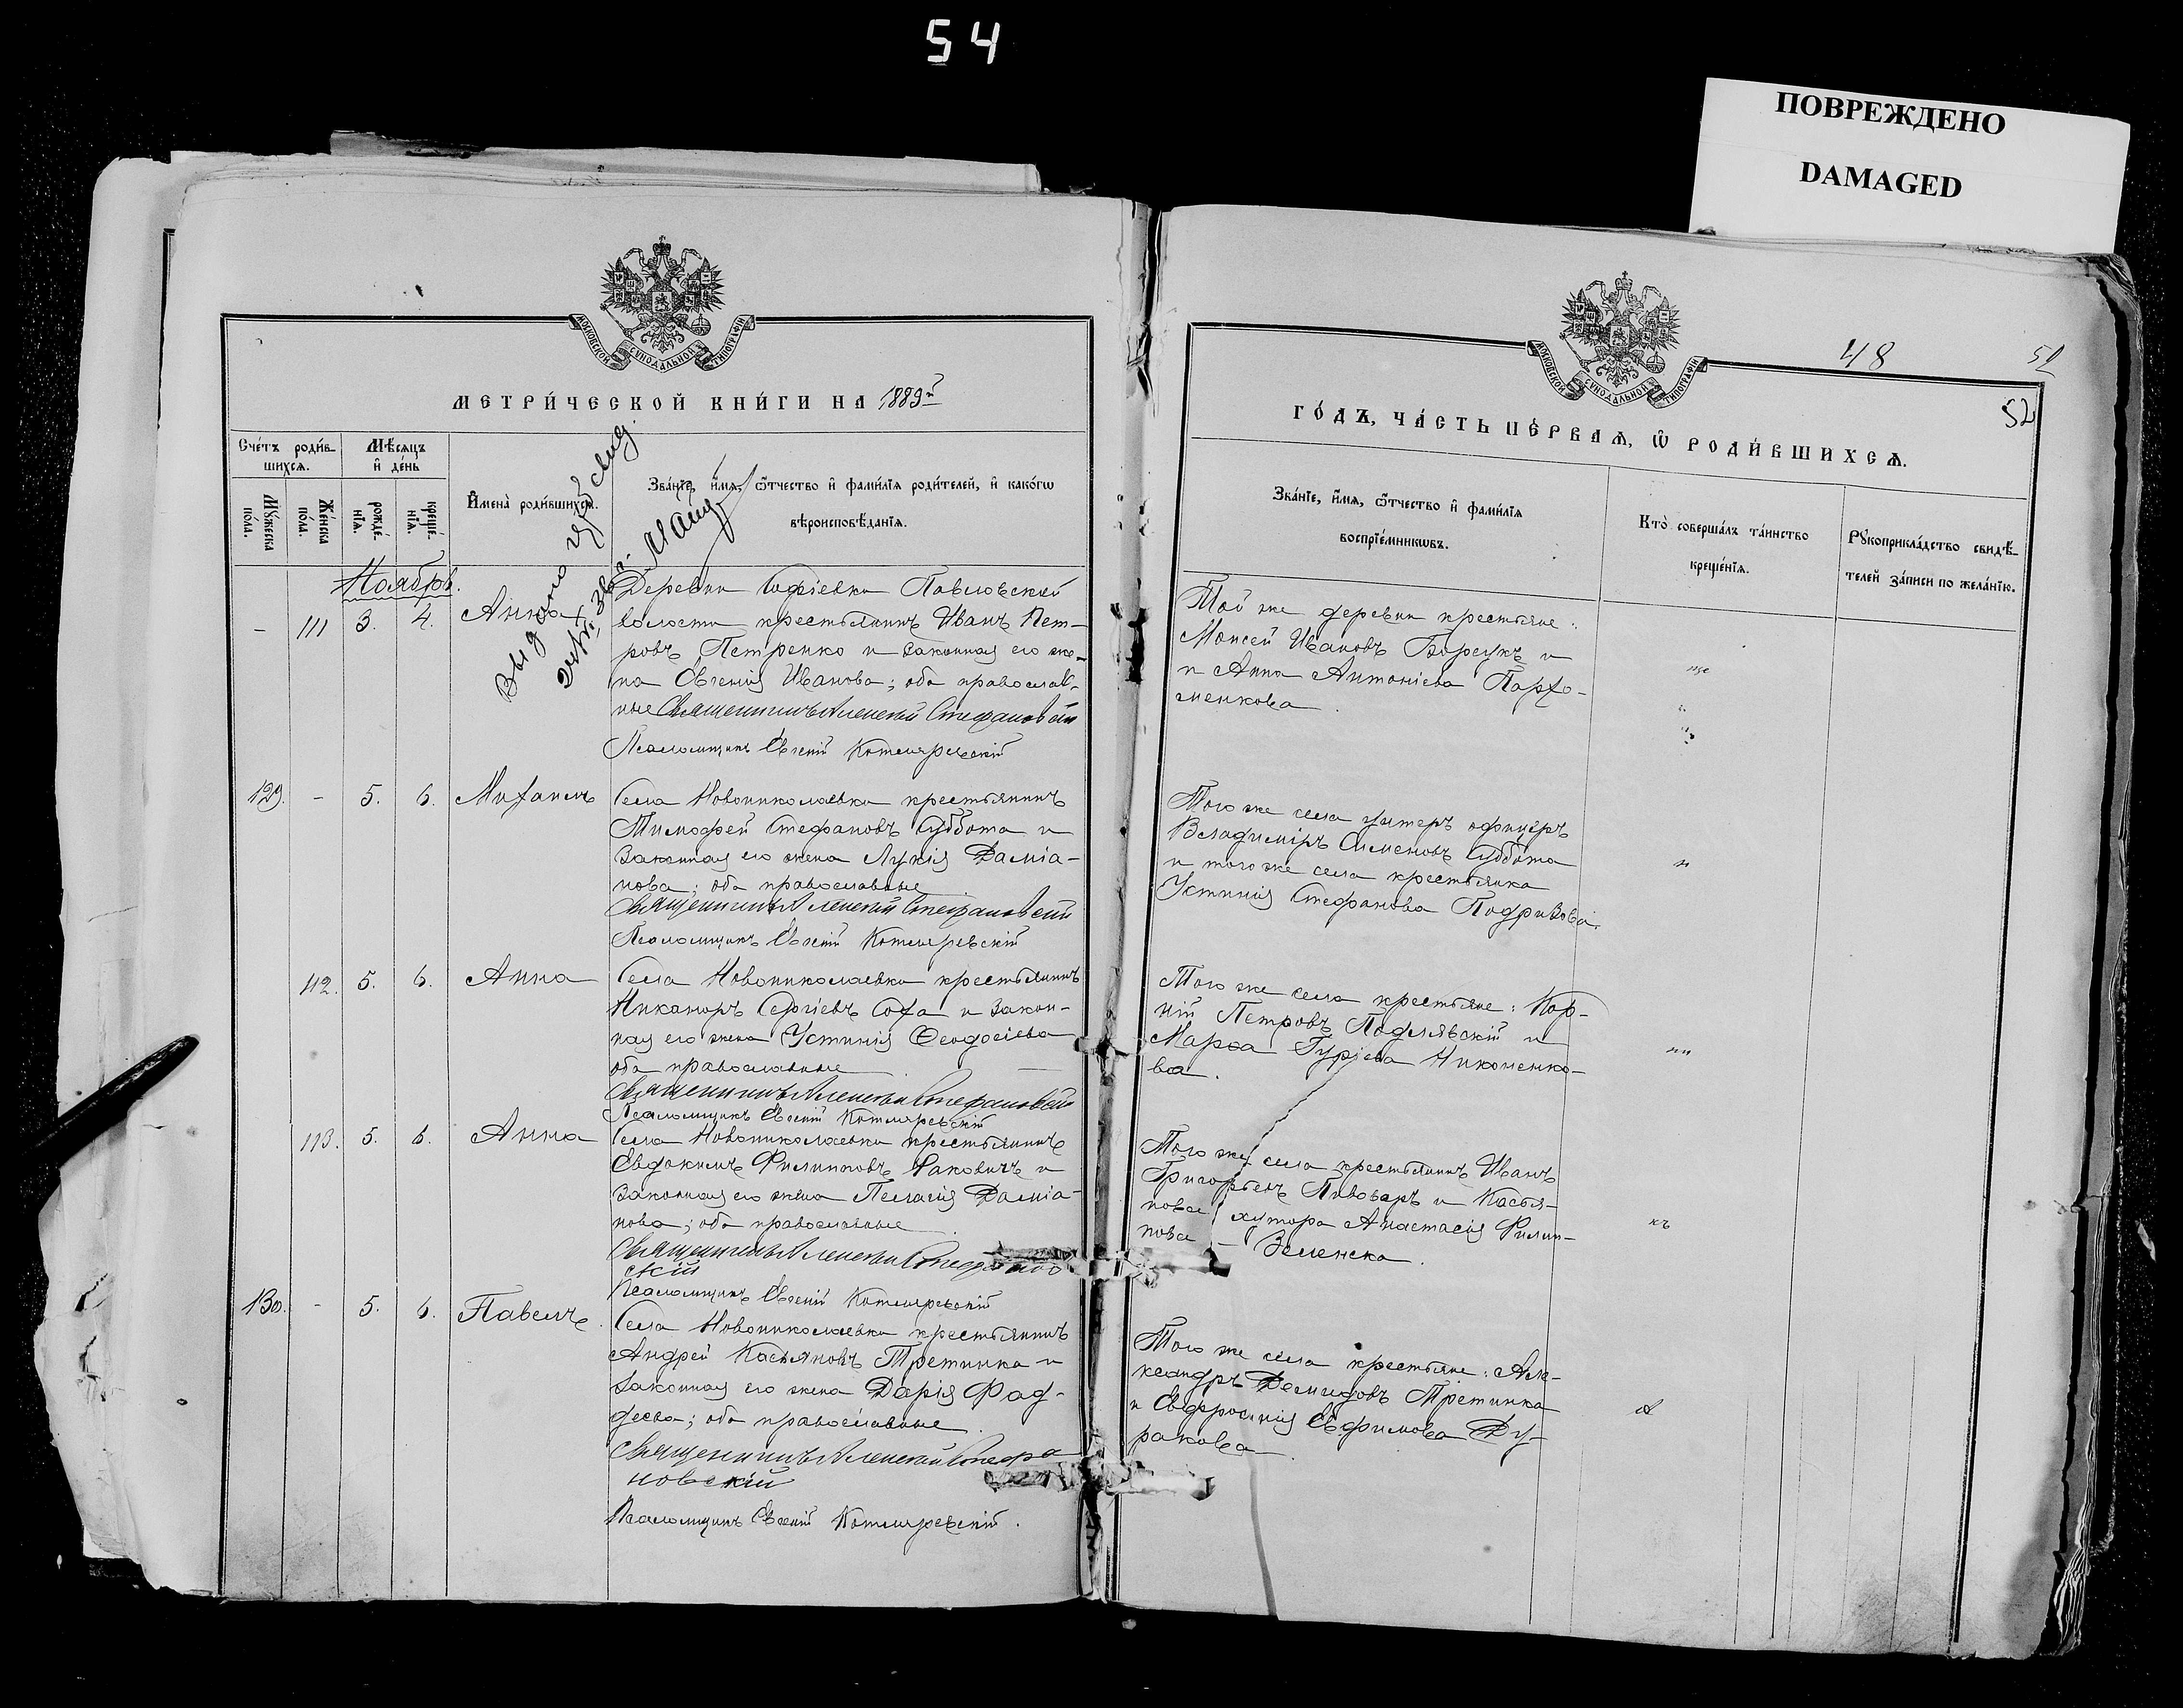 54
ПОВРЕЖДЕНО
DAMAGED
МОСКОВСКОЙ СУНОДАЛЬНОЙ ТИПОГРАФІИ
МЕТРИ́ЧЕСКОЙ КНИ́ГИ НА 1889й
Сче́тъ роди́в-
шихся.
Мѣ́сяцъ
и҆ де́нь
Му́жеска
по́ла.
Же́нска
по́ла.
рожде́-
нїѧ.
креще́-
нїѧ.
И҆мена̀ роди́вшихсѧ.
Зва́нїе, и҆́мѧ, ѻ҆́тчество и҆ фами́лїѧ роди́телей, и҆ како́гѡ
вѣроисповѣ́данїѧ.
Выдано
Ноябрь.
– 111 3. 4. Анна
Деревни Софіевки Павловской
волости крестьянинъ Иванъ Пет-
ровъ Петренко и законная его же-
на Евгенія Иванова; оба православ-
ные Священникъ Алексій Стефановскій
Псаломщикъ Евгеній Котляревскій
129. – 5. 6. Михаилъ
Села Новониколаевки крестьянинъ
Тимофей Стефановъ Суббота и
законная его жена Лукія Даміа-
нова; оба православные
Священникъ Алексій Стефановскій
Псаломщикъ Евгеній Котляревскій
112. 5. 6. Анна
Села Новониколаевки крестьянинъ
Никаноръ Сергіевъ Соха и закон-
ная его жена Устинія Ѳеодосіева
оба православные
Священникъ Алексій Стефановскій
Псаломщикъ Евгеній Котляревскій
113. 5. 6. Анна
Села Новониколаевки крестьянинъ
Евдокимъ Филиповъ Раковичъ и
законная его жена Пелагія Даміа-
нова; оба православные
Священникъ Алексій Стефанов
скій
Псаломщикъ Евгеній Котляревскій
130. – 5. 6. Павелъ
Села Новониколаевки крестьянинъ
Андрей Касьяновъ Третинка и
законная его жена Дарія Фад-
деева; оба православные
Священникъ Алексій Стефа
новскій
Псаломщикъ Евгеній Котляревскій.
МОСКОВСКОЙ СУНОДАЛЬНОЙ ТИПОГРАФІИ
48
52
52
ГО́ДЪ, ЧА́СТЬ ПЕ́РВАѦ, Ѡ҆ РОДИ́ВШИХСѦ.
Зва́нїе, и҆́мѧ, ѻ҆́тчество и҆ фами́лїѧ
воспрїе́мникѡвъ.
Кто̀ соверша́лъ та́инство
креще́нїѧ.
Рꙋкоприкла́дство свидѣ́-
телей за́писи по жела́нїю.
Той же деревни крестьяне:
Моисей Ивановъ Борсукъ и
и Анна Антоніева Пархо-
менкова.
Того же села унтеръ офицеръ
Владиміръ Сименовъ Суббота
и того же села крестьянка
Устинія Стефанова Подризова.
Того же села крестьяне: Кор-
ній Петровъ Подлявскій и
Марѳа Гуріева Никоненко-
ва.
Того же села крестьянинъ Иванъ
Григорьевъ Пивоваръ и Касья-
новa хутора Анастасія Филип-
пова – Зеленска.
Того же села крестьяне: Але-
ксандръ Демидовъ Третинка
и Евфросинія Ефимова Ду-
ракова